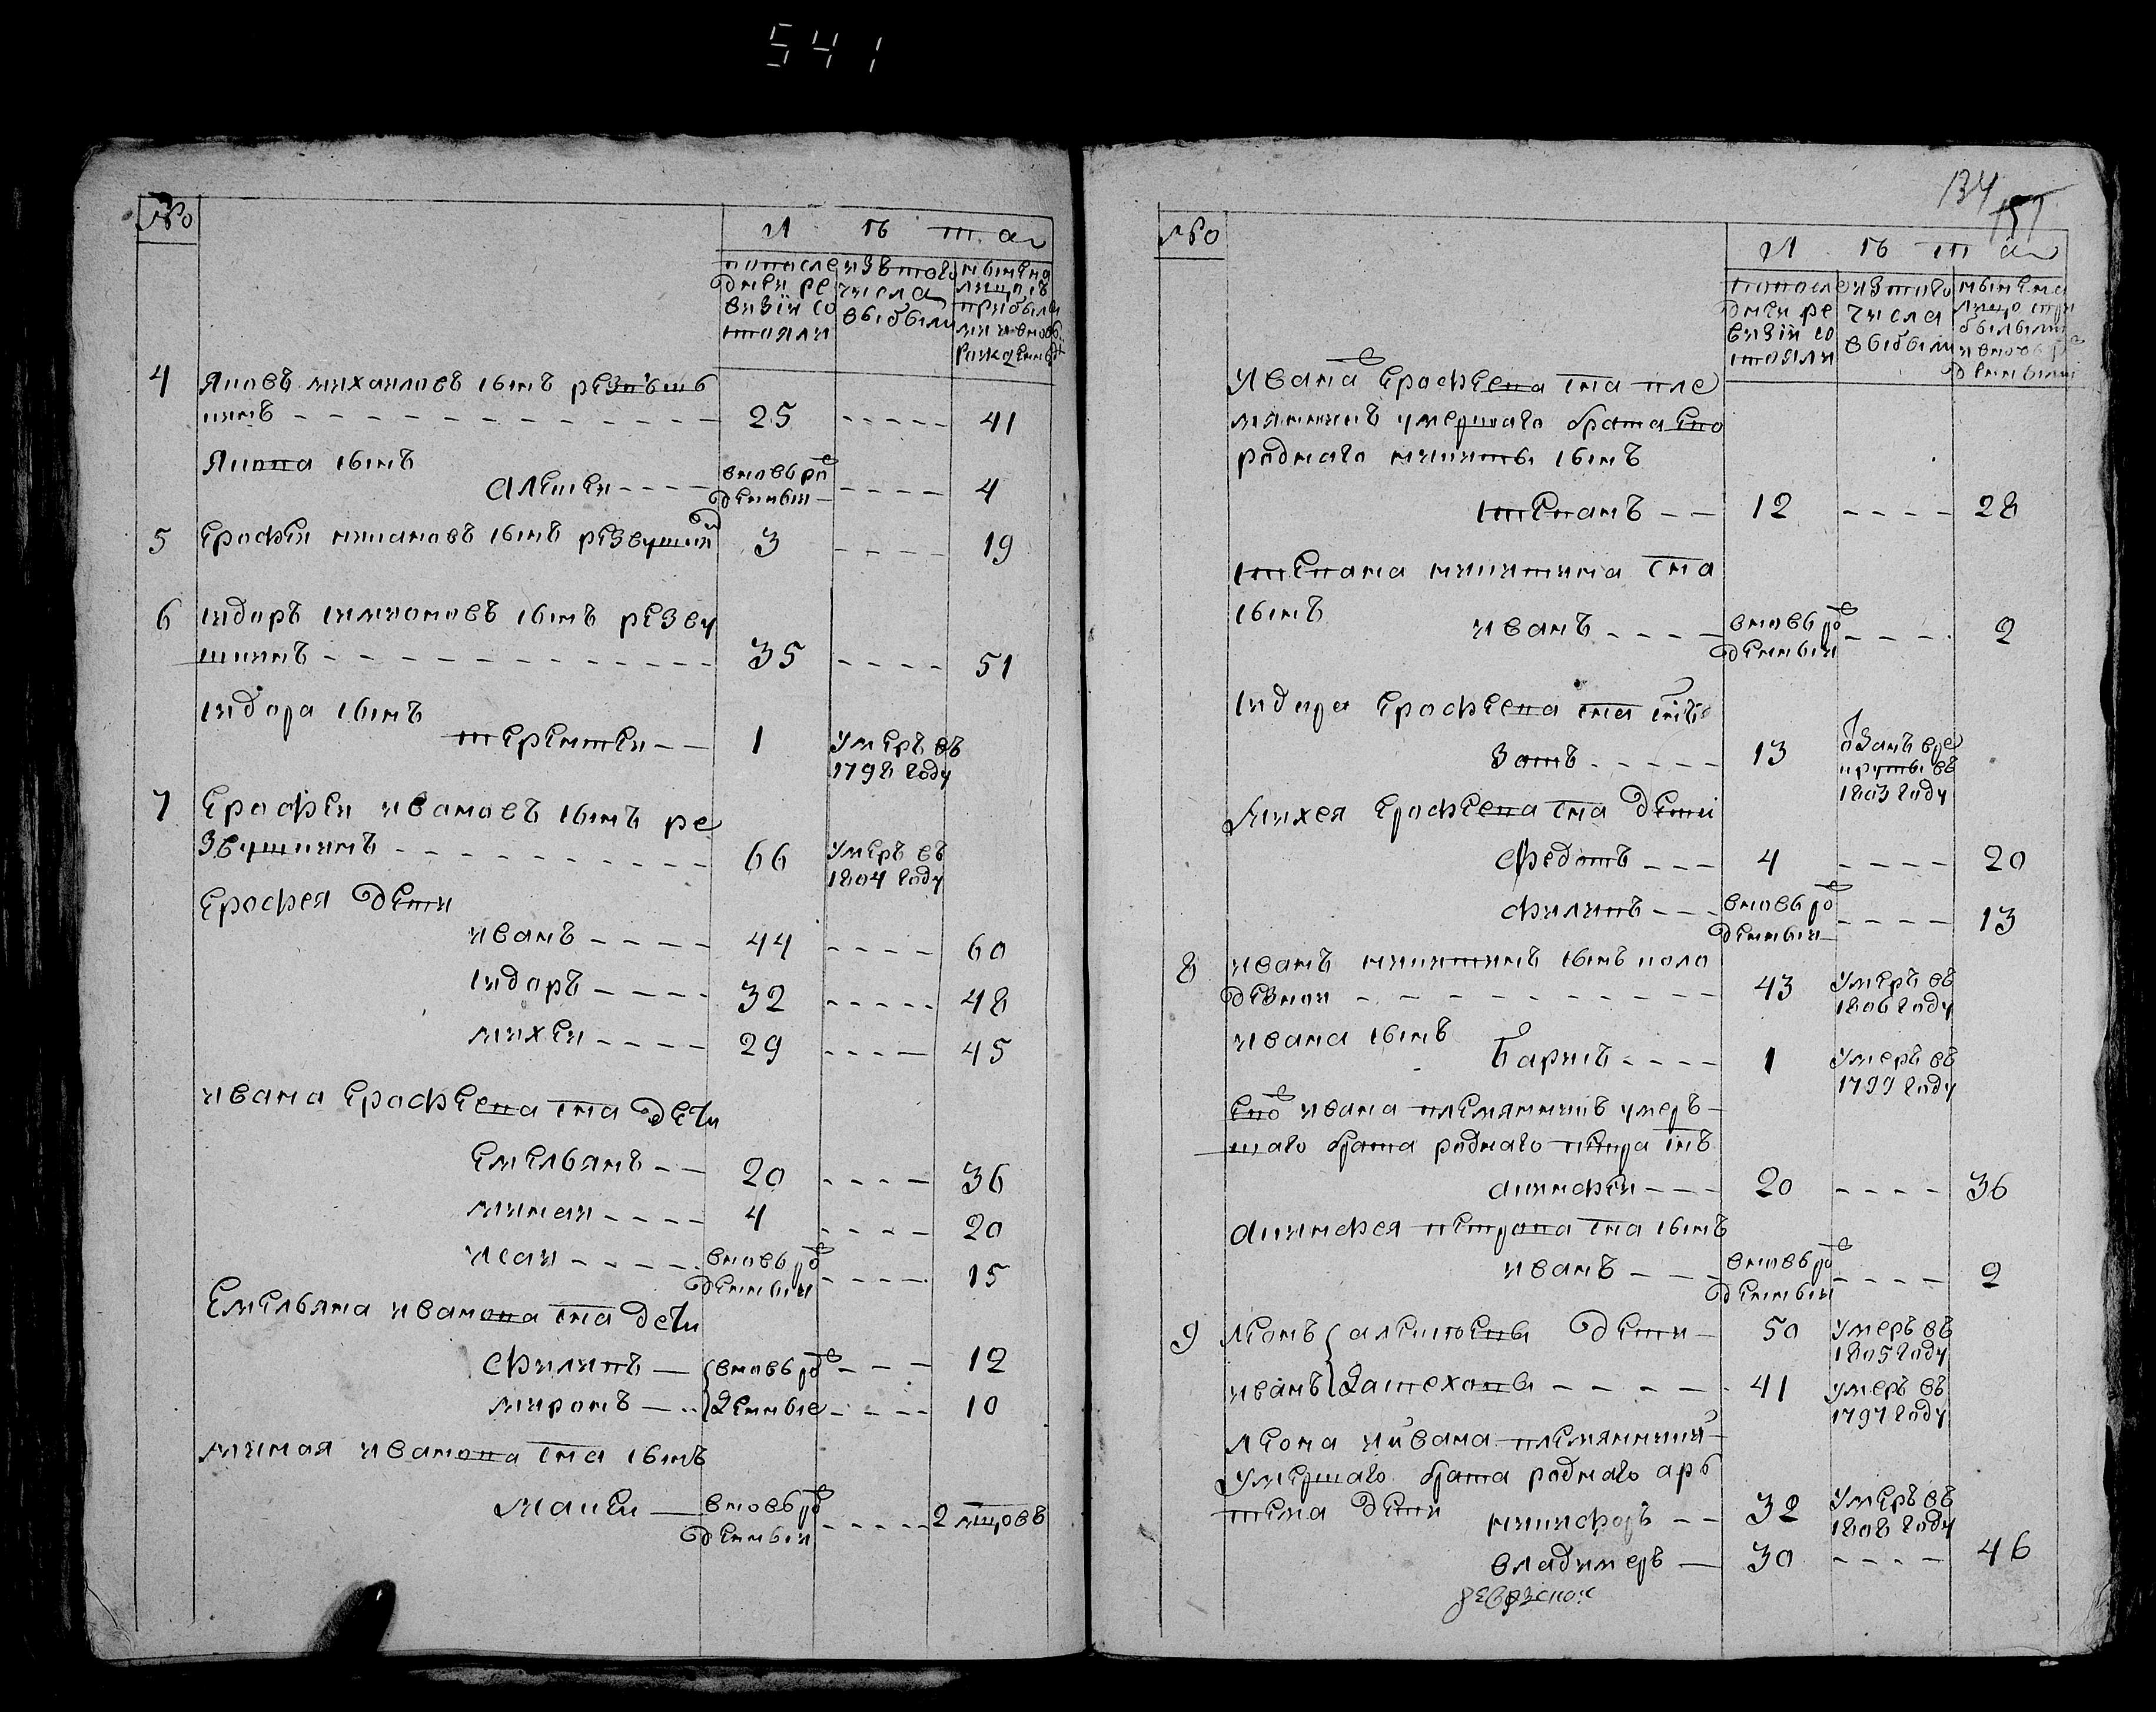 541
№
Лѣта
попосле изтого нынѣ на
дней ре числа лицо съ
визiи со выбыли прибыл
стояли ми и вновь
рожденны
4 Яковъ михаиловъ сынъ резвуш
кинъ 25 41
Якова сынъ
алексей вновь ро 4
жденный
5 Ерофей ивановъ сынъ резвушкин 3 19
6 Сидоръ симионовъ сынъ резву
шкинъ 35 51
Сидора сынъ
терентей 1 умеръ въ
1798 году
7 Ерофей ивановъ сынъ ре
звушкинъ 66 умеръ въ
1804 году
Ерофея дети
иванъ 44 60
сидоръ 32 48
михей 29 45
ивана Ерофеева сна дети
Емельянъ 20 36
миней 4 20
исай вновь ро 15
жденный
Емельяна иванова сна дети
филипъ вновь ро 12
миронъ жденные 10
миная иванова сна сынъ
макей вновь ро 2 мцовъ
жденный
134
157
№
Лѣта
попосле изтого нынѣ на
дней ре числа лицо при
визiи со выбыли былыми
стояли и вновь ро
жденными
Ивана Ерофеева сна пле
мянникъ умершаго брата ево
роднаго никиты сынъ
степанъ 12 28
степана никитина сна
сынъ
иванъ вновь ро 2
жденный
Сидора Ерофеева сна снъ
Зотъ 13 ozданъ въ ре
круты въ
1803 году
михея Ерофеева сна дети
федотъ 4 20
филипъ вновь ро 13
жденный
8 иванъ никитинъ сынъ коло
дезной 43 умеръ въ
1806 году
ивана сынъ
Карпъ 1 умеръ въ
1799 году
Ево ивана племянникъ умер
шаго брата роднаго петра снъ
акинфей 20 36
акинфея петрова сна сынъ
иванъ вновь ро 2
жденный
9 леонъ алексеевы дети 50 умеръ въ
1805 году
иванъ Залеховы 41 умеръ въ
1797 году
леона и ивана племянники
умершаго брата роднаго ар
тема дети
никифоръ 32 умеръ въ
1808 году
владимеръ 30 46